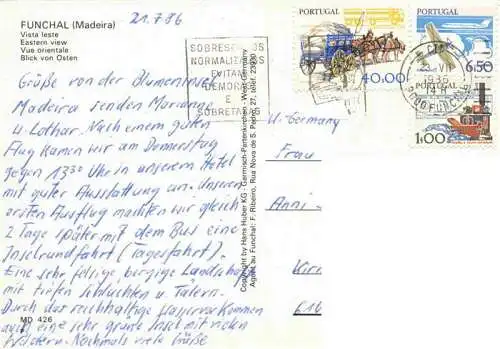 FUNCHAL (Madeira)
Vista leste
Eastern view
Vue orientale
Blick von Osten
21.7.86
Grüße von der Blumeninsel
Madeira senden Marianne
u. Lothar. Nach einem guten
Flug kamen wir am Donnerstag
gegen 13³⁰ Uhr in unserem Hotel
mit guter Ausstattung an. Unseren
ersten Ausflug machten wir gleich
2 Tage später mit dem Bus eine
Inselrundfahrt (Tagesfahrt).
Eine sehr felsige bergige Landschaft
mit tiefen Schluchten u. Tälern.
Durch das reichhaltige Wasservorkommen
auch eine sehr grüne Insel mit vielen
Wäldern. Nochmals viele Grüße
MD 426
Copyright by Hans Huber KG · Garmisch-Partenkirchen · West-Germany
Agent au Funchal: F. Ribeiro, Rua Nova de S. Pedro 27, telef. 23930
SOBRESCRITOS
NORMALIZADOS
EVITAM
DEMORAS
E
SOBRETAXAS
PORTUGAL
40.00
PORTUGAL
6.50
PORTUGAL
1.00
W. Germany
Frau
Anni